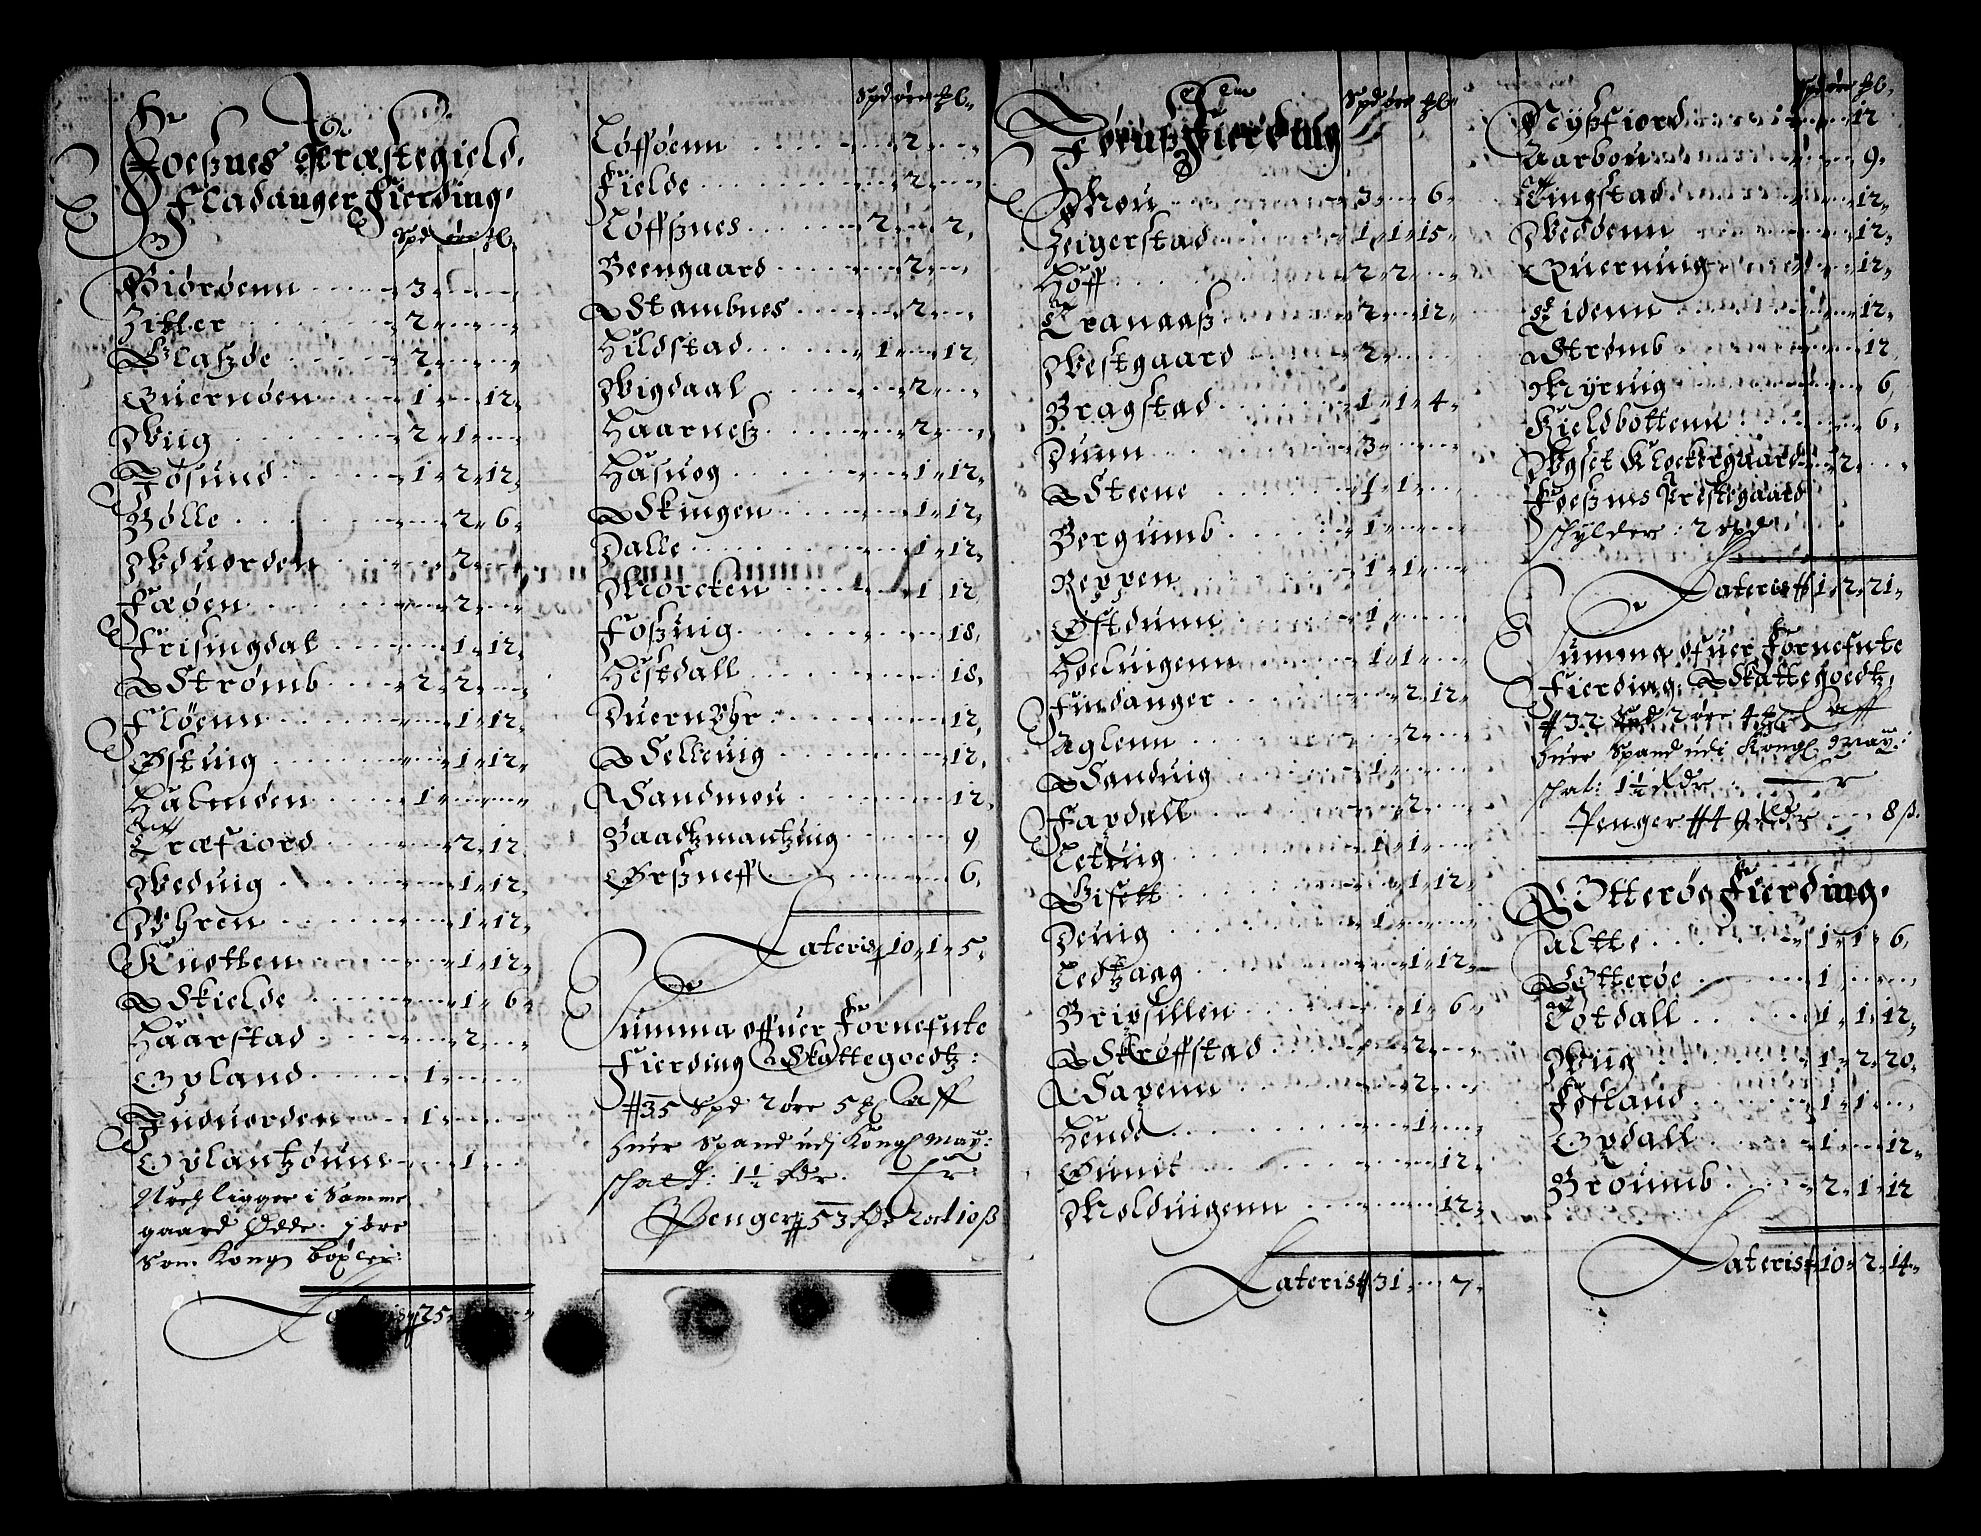 Foeßnes Præstegield.
Fladanger Fierding.
Spd øre
Biørøenn 3
Zitter 2
Blahde 2
Quernøen 1 12
Wiig 2 1
Josund 1 2 12
Bølle 2 6
Waduorden 2
Faøen 2
Frisingdal 1 12
Strømb 2 2
Fløenn 1 12
Østuig 1 12
Halmøen 1
Træfiord 2 12
Weduig 1 12
Øhren 1 12
Knotten 1 12
Skielde 1 6
Haarstad 2
Opland 1
Induorden 1
Oplantzøune 1
Noch ligger i Samme
gaard Øde 1 øre
Som Kong boxler:
Lateris 25
Spd øre
Løfføenn 2
Fielde 2
Løffßnes 2 2
Beengaard 2
Stambnes 2
Hildstad 1 12
Wigdaal 2
Haarneß 2
Hasuog 1 12
Skingen 1 12
Dalle 1 12
Morcken 1 12
Foßuig 18
Hestdall 18
Duernbyr 12
Selleuig 12
Sandmou 12
Baadtzmantzuig 9
Ørßneff 6
Lateris 10 1 5
Summa offuer Fornefnte
Fierding Skattegoedtz:
35 Spd 2 øre 5 Aff
huer Spand udj Kongl May:
schatt: 1½ Rdr.
Penger 53 Rdr 2 ort 10 ß
Jøruß Fierding
Spd øre
Mou 3 6
Zeigerstad 1 1 15
Hoff 2 2
Tranaaß 2 12
Westgaard 2
Bragstad 1 1 4
Dunn 3
Steene 1 1
Bergumb 1
Reppen 1 1
Østdunn 1
Hoeluigenn 1 1
Findanger 2 12
Aglenn 2
Sanduig 1
Fardall 2
Letuig 1 1
Bisett 1 12
Deuig 1
Ledtzaag 1 12
Bripsillen 1 6
Skroffstad 2
Saxenn 2
Hende 1
Gundt 12
Molduigenn 12
Lateris 31 7
Spd øre
Nyßfiord 12
Aarbou 9
Tingstad 12
Wedøenn 12
Querning 12
Eidenn 12
Strømb 12
Myruig 6
Kieldbottenn 6
Wgset Klockergaard 2
Foeßnes Prestegaard
schylder: 2 spd
Lateris 1 2 21
Summa ofuer Fornefnte
Fierding Skattegoedtz,
32 Spd 2 øre 4 Aff
huer Spand udi Kongl May:
schat: 1½ Rdr
Penger 49 Rdr 8 ß.
Otterøe Fierding.
altte 1 1 6
Otterøe 1
Totdall 1 1 12
Wiig 1 2 20
Fosland 1 1
Opdall 1 12
Broumb 2 1 12
Lateris 10 2 14